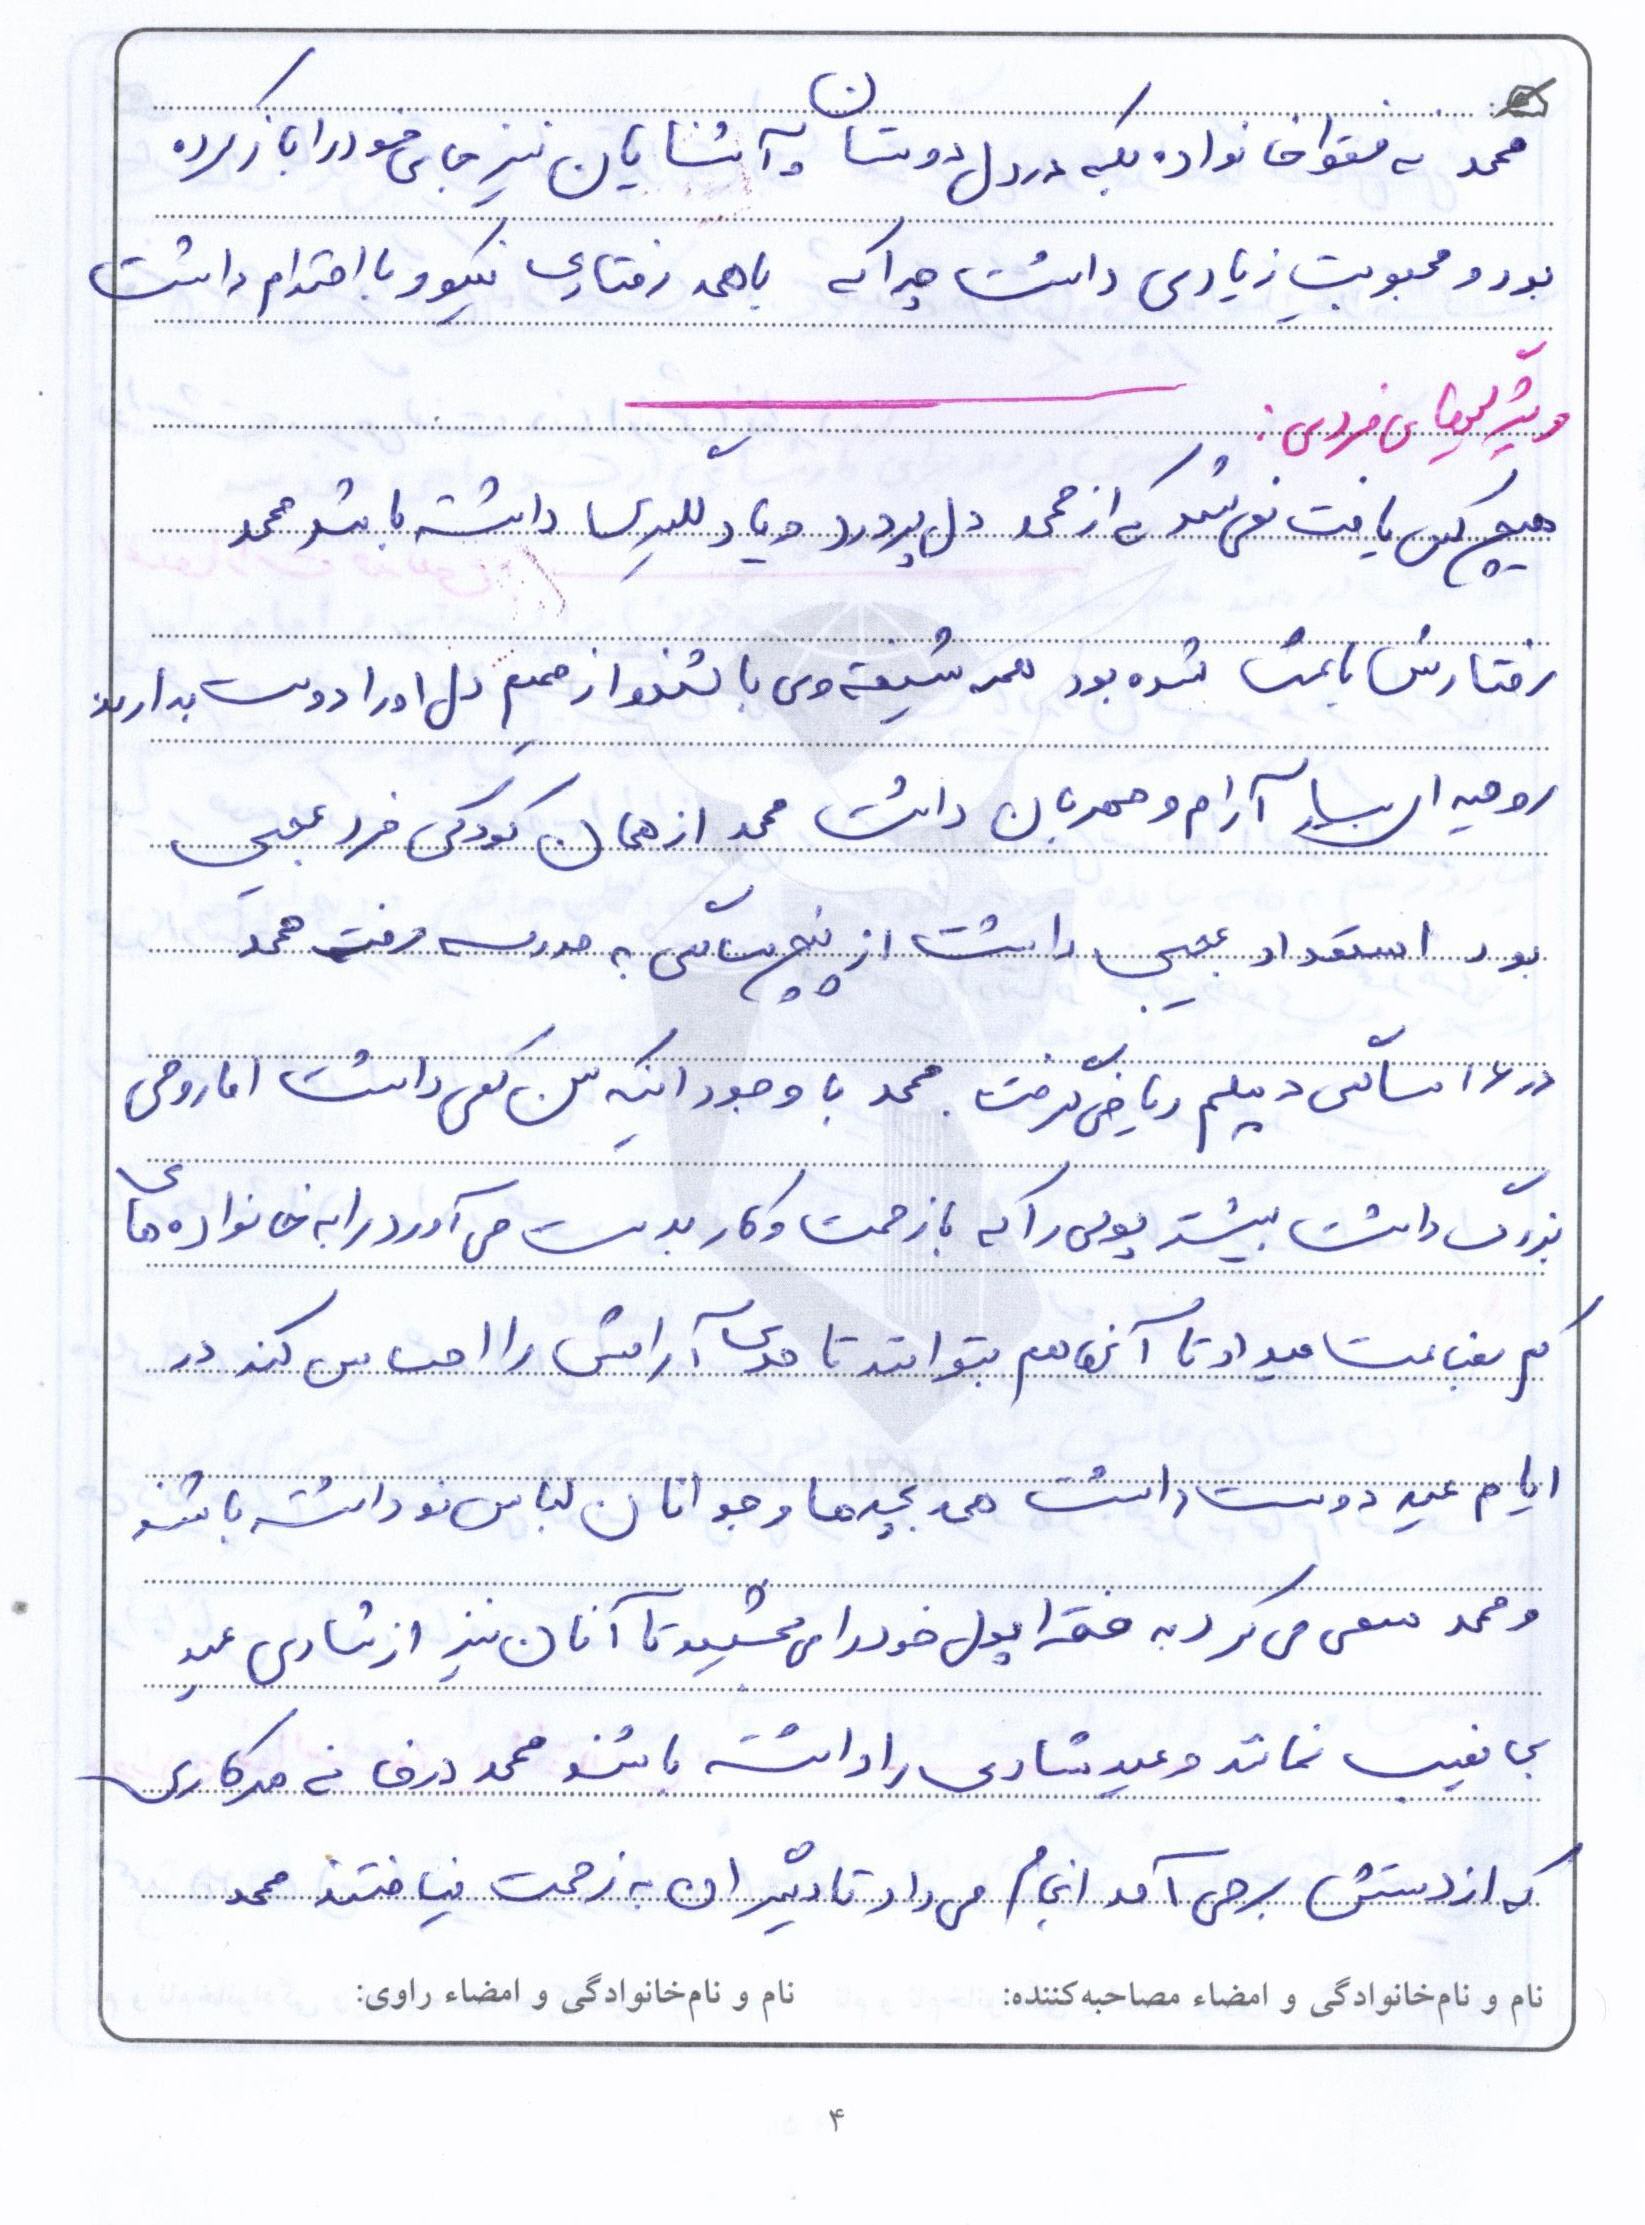 محمد نه فقط خانواده بلکه در دل دوستان و آشنایان نیز جای خود را باز کرده
بود و محبوبیت زیادی داشت چرا که با همه رفتاری نیکو و با احترام داشت
ویژگیهای فردی:
هیچ کس یافت نمی‌شد که از محمد دل پر درد و یا دلگیری داشته باشد محمد
رفتارش باعث شده بود همه شیفته وی باشند و از صمیم دل او را دوست بدارند
روحیه ای بسیار آرام و مهربان داشت محمد از همان کودکی فرد عجیبی
بود استعداد عجیبی داشت از پنج سالگی به مدرسه رفت محمد
در ۱۶ سالگی دیپلم ریاضی گرفت. محمد با وجود اینکه سن کمی داشت اما روحی
بزرگ داشت بیشتر پولی را که با زحمت و کار بدست می آورد را به خانواده های
کم بضاعت میداد تا آنها هم بتوانند تا حدی آرامش را احساس کند در
ایام عید دوست داشت همه بچه ها و جوانان لباس نو داشته باشند
و محمد سعی می کرد به فقرا پول خود را می بخشید تا آنان نیز از شادی عید
بی نصیب نمانند و عید شادی را داشته باشند محمد در خانه هر کاری
که از دستش بر می آمد انجام می داد تا دیگران به زحمت نیافتند محمد
نام و نام‌خانوادگی و امضاء مصاحبه‌کننده: نام و نام‌خانوادگی و امضاء راوی:
۴